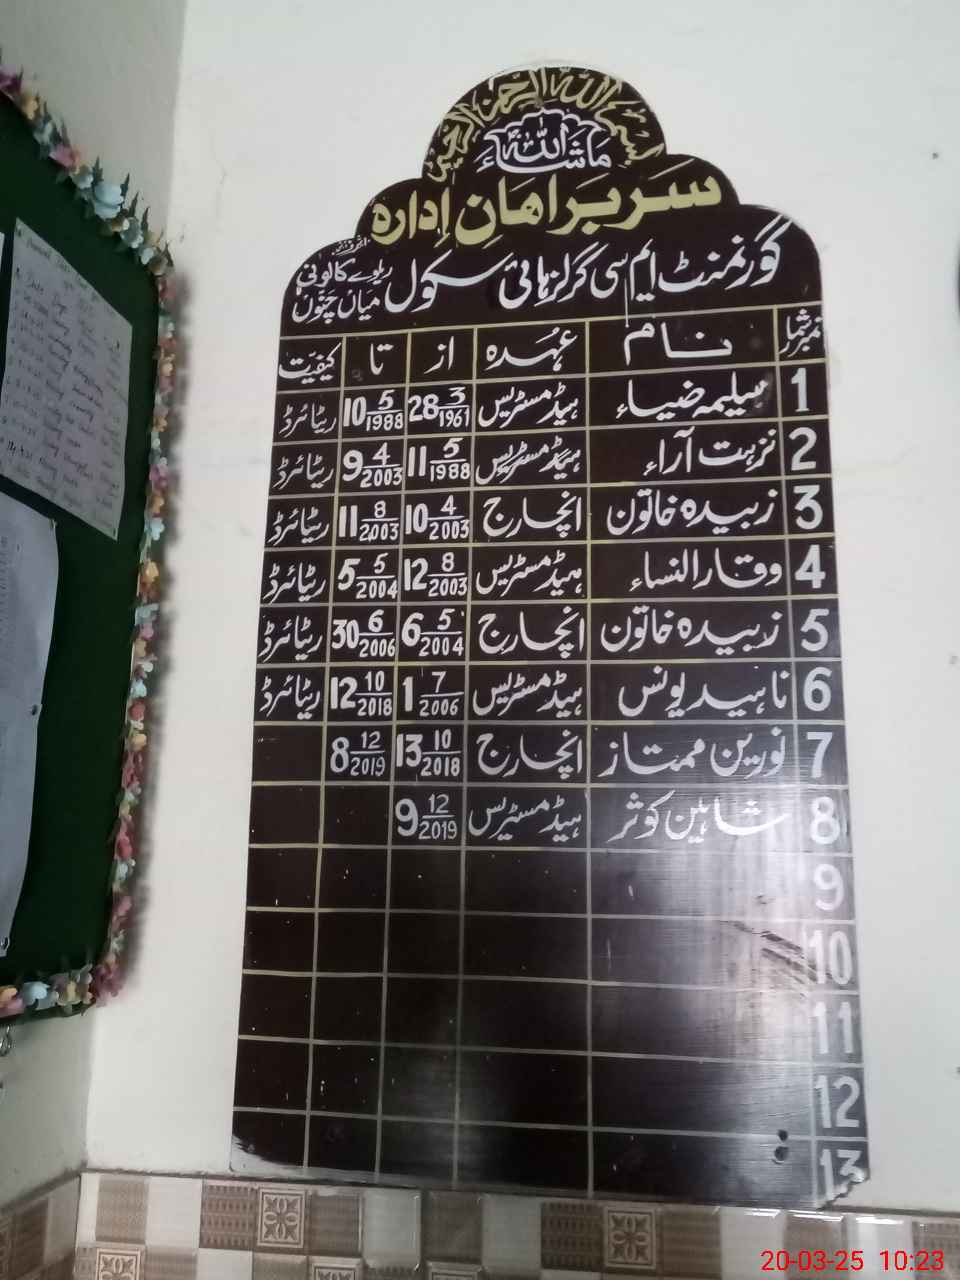 بسم اللہ الرحمن الرحیم
ماشاءاللہ
سربراهانِ اِداره
گورنمنٹ ایم سی گرلز ہائی سکول ریلوے کالونی میاں چنوں
نمبر شمار نام عہُدہ از تا کیفیّت
1 سلیمہ ضیاء ہیڈ مسٹریس 28 3/1961 10 5/1988 ریٹائرڈ
2 نزہت آراء ہیڈ مسٹریس 11 5/1988 9 4/2003 ریٹائرڈ
3 زبیدہ خاتون انچارج 10 4/2003 11 8/2003 ریٹائرڈ
4 وقار النساء ہیڈ مسٹریس 12 8/2003 5 5/2004 ریٹائرڈ
5 زبیدہ خاتون انچارج 6 5/2004 30 6/2006 ریٹائرڈ
6 ناہید یونس ہیڈ مسٹریس 1 7/2006 12 10/2018 ریٹائرڈ
7 نورین ممتاز انچارج 13 10/2018 8 12/2019
8 شاہین کوثر ہیڈ مسٹریس 9 12/2019
9
10
11
12
13
20-03-25 10:23